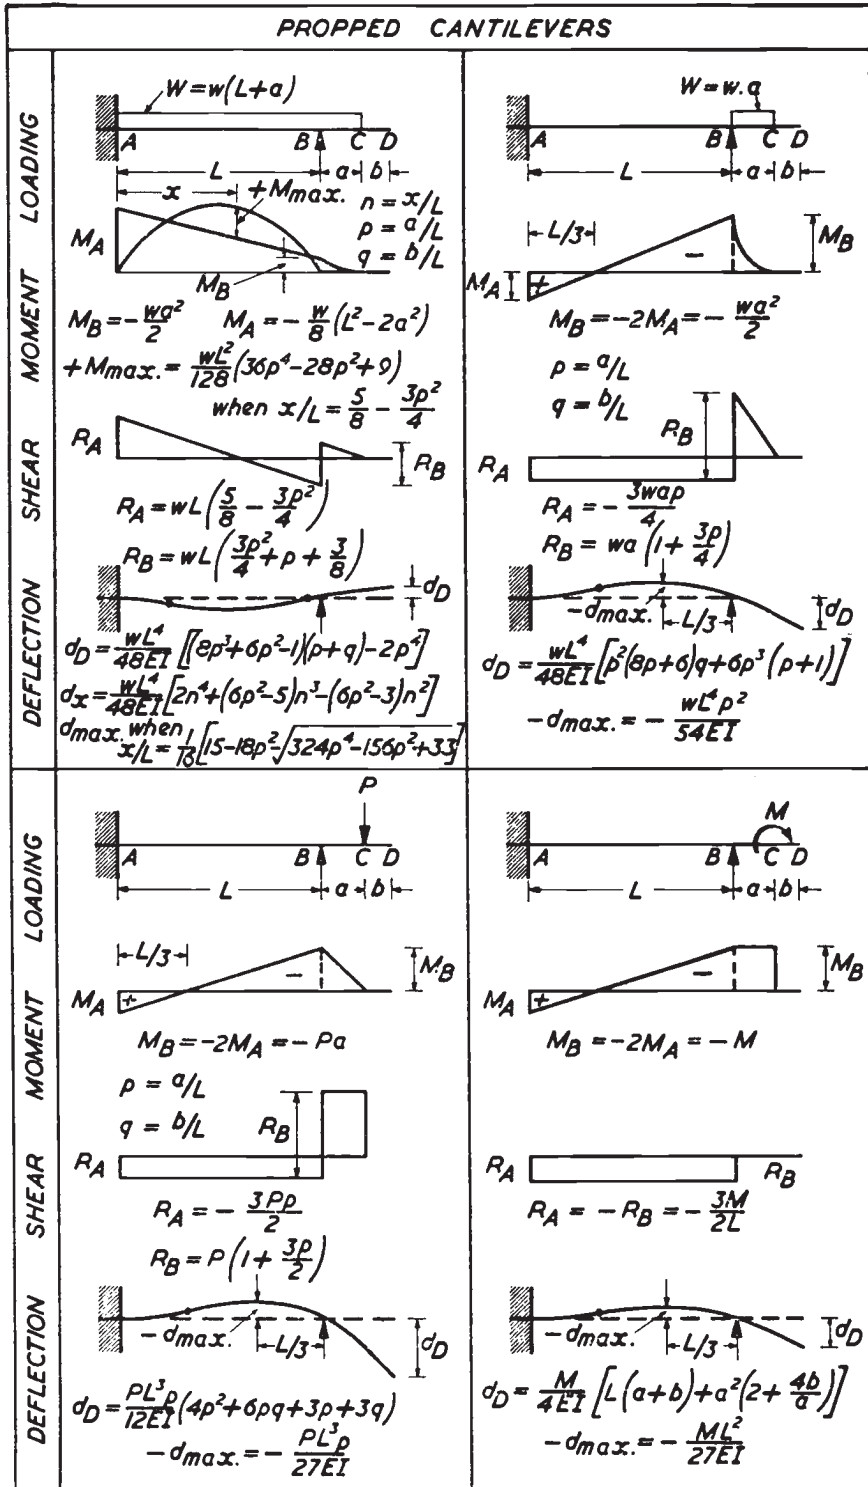 PROPPED CANTILEVERS
LOADING
MOMENT
SHEAR
DEFLECTION
W=w(L+a)
A B C D
L a b
x +Mmax. n = x/L
p = a/L
q = b/L
MA
MB
MB=-wa²/2 MA=-w/8(L²-2a²)
+Mmax.=wL²/128(36p⁴-28p²+9)
when x/L=5/8-3p²/4
RA RB
RA=wL(5/8-3p²/4)
RB=wL(3p²/4+p+3/8)
dD
dD=wL⁴/48EI[(8p³+6p²-1)(p+q)-2p⁴]
dx=wL⁴/48EI[2n⁴+(6p²-5)n³-(6p²-3)n²]
dmax. when
x/L=1/16[15-18p²-√324p⁴-156p²+33]
W=w.a
A B C D
L a b
L/3
MB
MA + -
MB=-2MA=-wa²/2
p=a/L
q=b/L
RB
RA
RA=-3wap/4
RB=wa(1+3p/4)
-dmax. L/3 dD
dD=wL⁴/48EI[p²(8p+6)q+6p³(p+1)]
-dmax.=-wL⁴p²/54EI
LOADING
MOMENT
SHEAR
DEFLECTION
P
A B C D
L a b
L/3
MB
MA + -
MB=-2MA=-Pa
p = a/L
q = b/L
RB
RA
RA=-3Pp/2
RB=P(1+3p/2)
-dmax. L/3 dD
dD=PL³p/12EI(4p²+6pq+3p+3q)
-dmax.=-PL³p/27EI
M
A B C D
L a b
MB
MA + -
MB=-2MA=-M
RA RB
RA=-RB=-3M/2L
-dmax. L/3 dD
dD=M/4EI[L(a+b)+a²(2+4b/a)]
-dmax.=-ML²/27EI